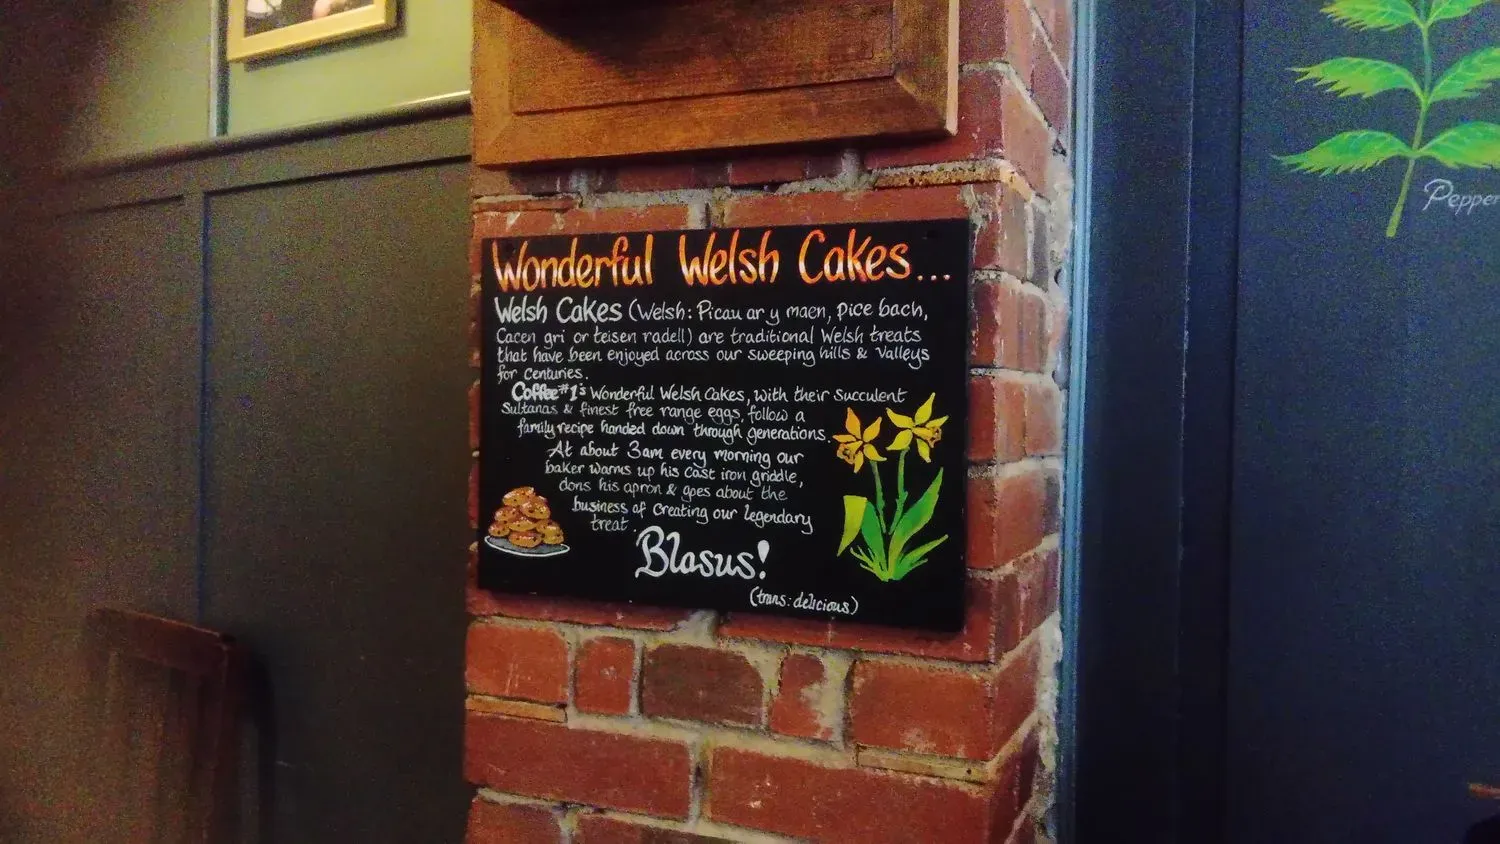 Wonderful Welsh Cakes...
Welsh Cakes (Welsh: Picau ar y maen, pice bach,
Cacen gri or teisen radell) are traditional Welsh treats
that have been enjoyed across our sweeping hills & Valleys
for Centuries.
Coffee#1's Wonderful Welsh Cakes, with their Succulent
Sultanas & finest free range eggs, follow a
family recipe handed down through generations.
At about 3am every morning our
baker warms up his cast iron griddle,
dons his apron & goes about the
business of creating our legendary
treat.
Blasus!
(trans: delicious)
Pepper